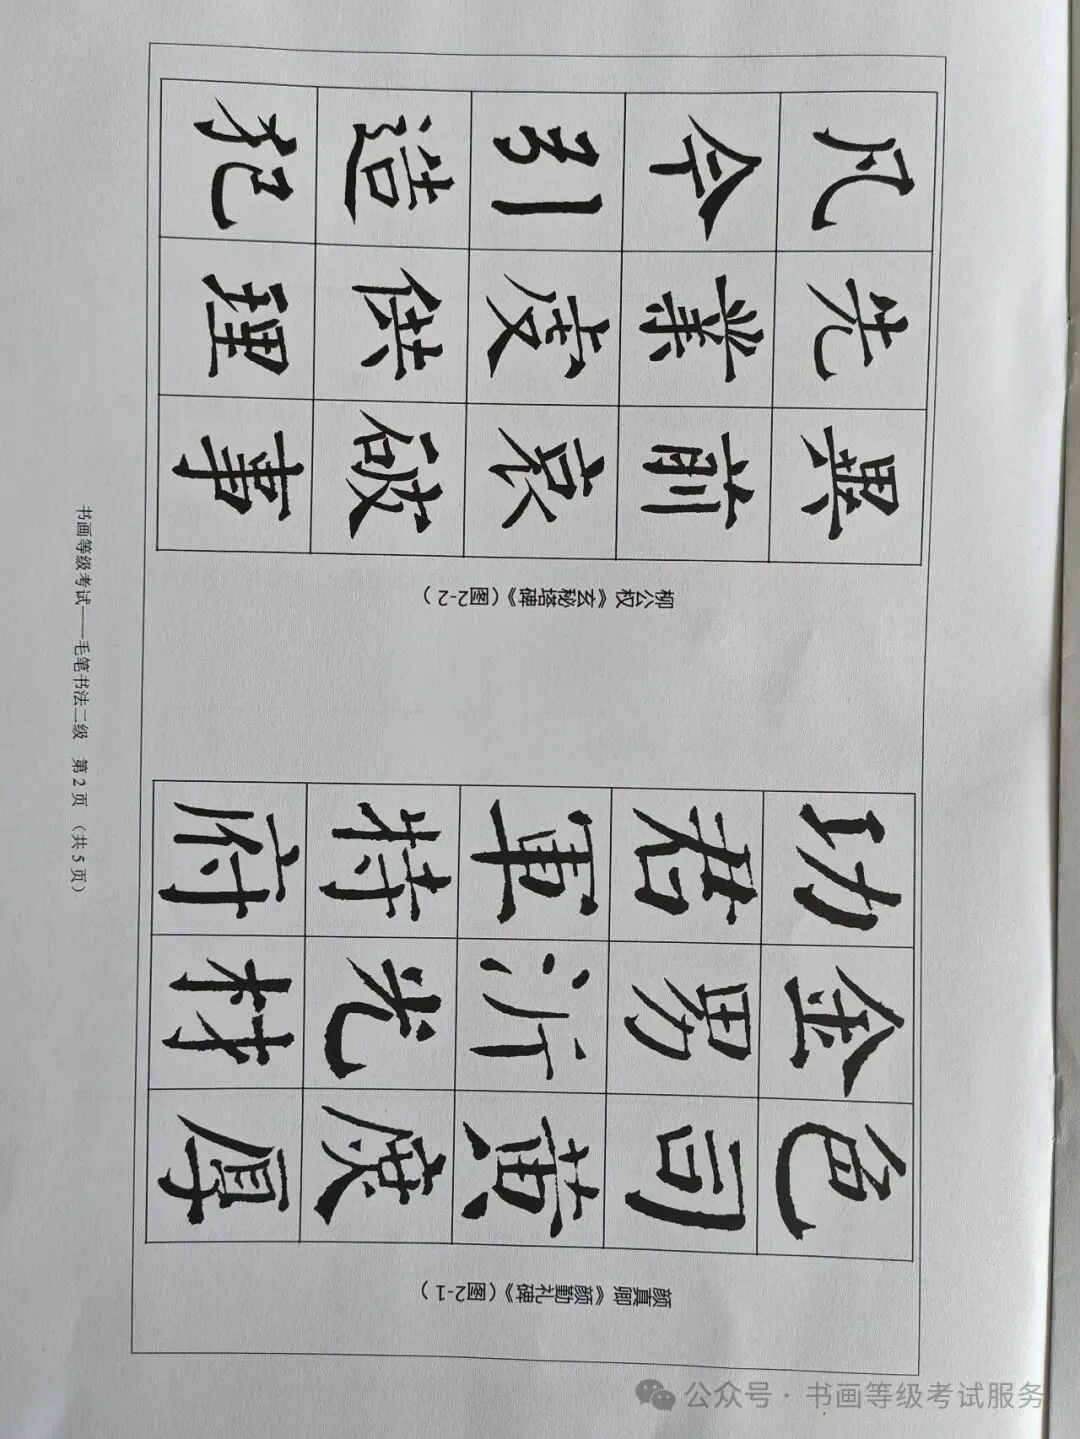 颜真卿《颜勤礼碑》（图2-1）
色司黄庶厚
金男沂光材
功君軍特府
柳公权《玄秘塔碑》（图2-2）
異前哀破事
先業度供理
凡今引造犯
书画等级考试——毛笔书法二级 第2页 （共5页）
公众号 · 书画等级考试服务